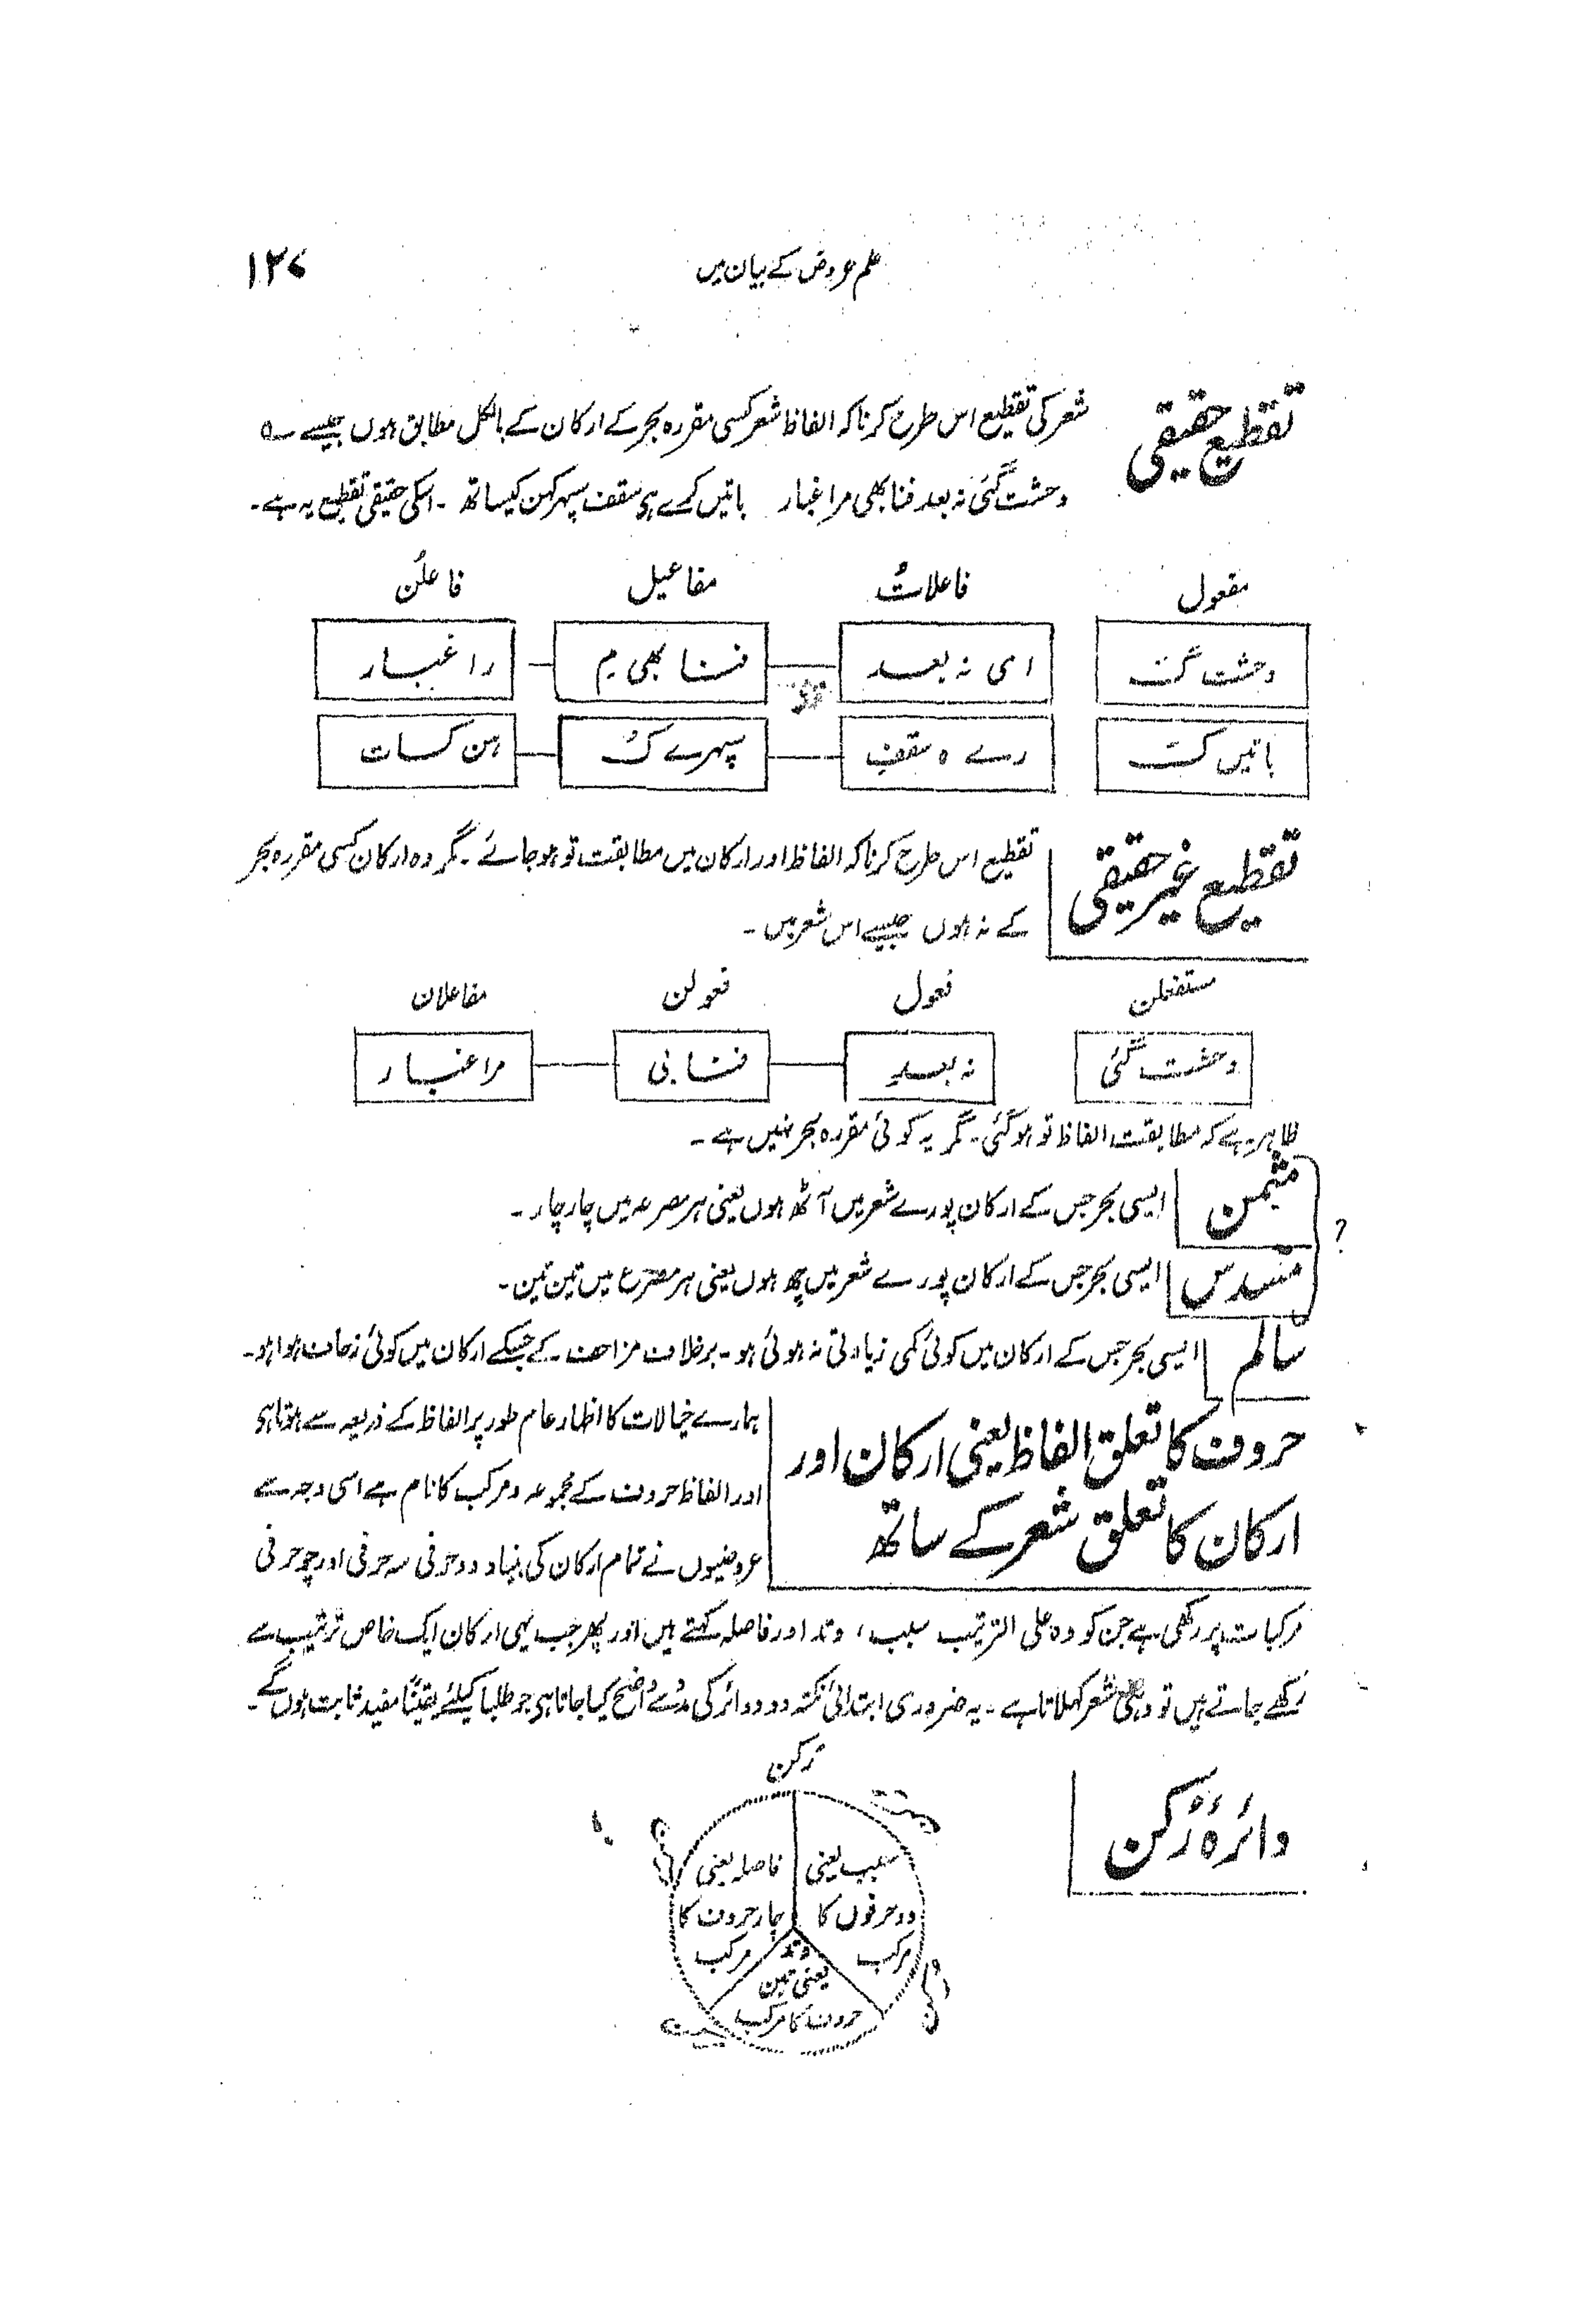 علم عروض کے بیان میں
۱۲۷
تقطیع حقیقی
شعر کی تقطیع اس طرح کرنا کہ الفاظ شعر کسی مقررہ بحر کے ارکان کے بالکل مطابق ہوں جیسے ؎
وحشت گئی نہ بعد فنا بھی مرا غبار باتیں کرے ہی سقف سپہر کہن کیساتھ ۔ اسکی حقیقی تقطیع یہ ہے۔
مفعول فاعلاتُ مفاعیل فاعلُن
وحشت گئ امی نہ بعد فنا بھی م را غبار
باتیں کر رے ہ سقفِ سپہرے کُ ہن کسات
تقطیع غیر حقیقی
تقطیع اس طرح کرنا کہ الفاظ اور ارکان میں مطابقت تو ہو جائے ۔ مگر وہ ارکان کسی مقررہ بحر
کے نہ ہوں جیسے اس شعر میں ۔
مستفعلن فعول فعولن مفاعلان
وحشت گئی نہ بعدِ فنا بی مرا غبار
ظاہر ہے کہ مطابقت الفاظ تو ہو گئی ۔ مگر یہ کوئی مقررہ بحر نہیں ہے ۔
مثمن
ایسی بحر جس کے ارکان پورے شعر میں آٹھ ہوں یعنی ہر مصرعہ میں چار چار ۔
?
مسدس
ایسی بحر جس کے ارکان پورے شعر میں چھ ہوں یعنی ہر مصرع میں تین تین ۔
سالم
ایسی بحر جس کے ارکان میں کوئی کمی زیادتی نہ ہوئی ہو ۔ برخلاف مزاحف کے جسکے ارکان میں کوئی زحاف ہوا ہو۔
حروف کا تعلق الفاظ یعنی ارکان اور
ارکان کا تعلق شعر کے ساتھ
ہمارے خیالات کا اظہار عام طور پر الفاظ کے ذریعہ سے ہوتا ہی
اور الفاظ حروف کے مجموعہ و مرکب کا نام ہے اسی وجہ سے
عروضیوں نے تمام ارکان کی بنیاد دو حرفی سہ حرفی اور چو حرفی
مرکبات پر رکھی ہے جن کو وہ علی الترتیب سبب ، وتد اور فاصلہ کہتے ہیں اور پھر جب یہی ارکان ایک خاص ترتیب سے
رکھے جاتے ہیں تو وہی شعر کہلاتا ہے ۔ یہ ضروری ابتدائی نکتہ دو دوائر کی مدد سے واضح کیا جاتا ہی جو طلبا کیلئے یقیناً مفید ثابت ہوں گے۔
دائرۂ رُکن
رُکن
سبب یعنی
دو حرفوں کا
مرکب
فاصلہ یعنی
چار حروف کا
مرکب
وتد
یعنی تین
حروف کا مرکب
رکن
رکن